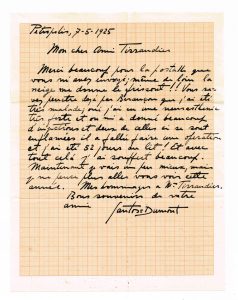 Petropolis, 7-5-1925
Mon cher Ami Terrandier
Merci beaucoup pour la postalle que
vous m'avez envoyé; même de loin la
neige me donne le frisson!! Vous sa-
vez peutre de par Besançon que j'ai été
très malade; oui, j'ai eu une neurasthénie
très forte et on m'a donné beaucoup
d'injections et deux de celles ci se sont
enflammées il a fallu faire une opération
et j'ai eté 52 jours au lit! Et avec
tout cela j'ai souffert beaucoup.
Maintenant je vais un peu mieux, mais
je ne peux plus aller vous voir cette
année. Mes hommages a Me Terrandier.
Bons souvenirs de votre
amie
Santos=Dumont